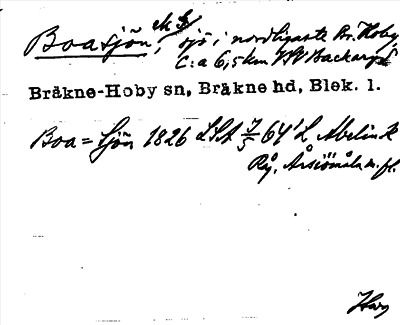 Boasjön, ek 5/, sjö i nordligaste Br. Hoby
C:a 6,5 km VSV Backaryd
Bråkne-Hoby sn, Bråkne hd, Blek. l.
Boa = Sjön 1826 LSA 7/5 64' L Abelin k
Rå, Årsiömåla m. fl.